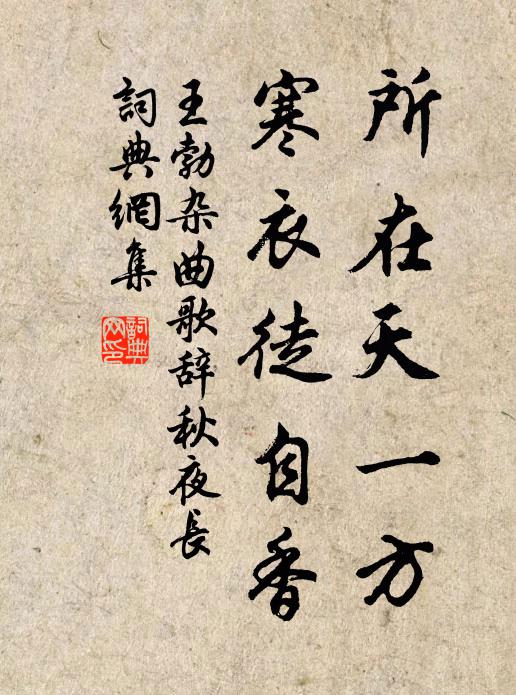 所在天一方
寒衣徒自香
王勃杂曲歌辞秋夜長
詞典網集
詞典網印